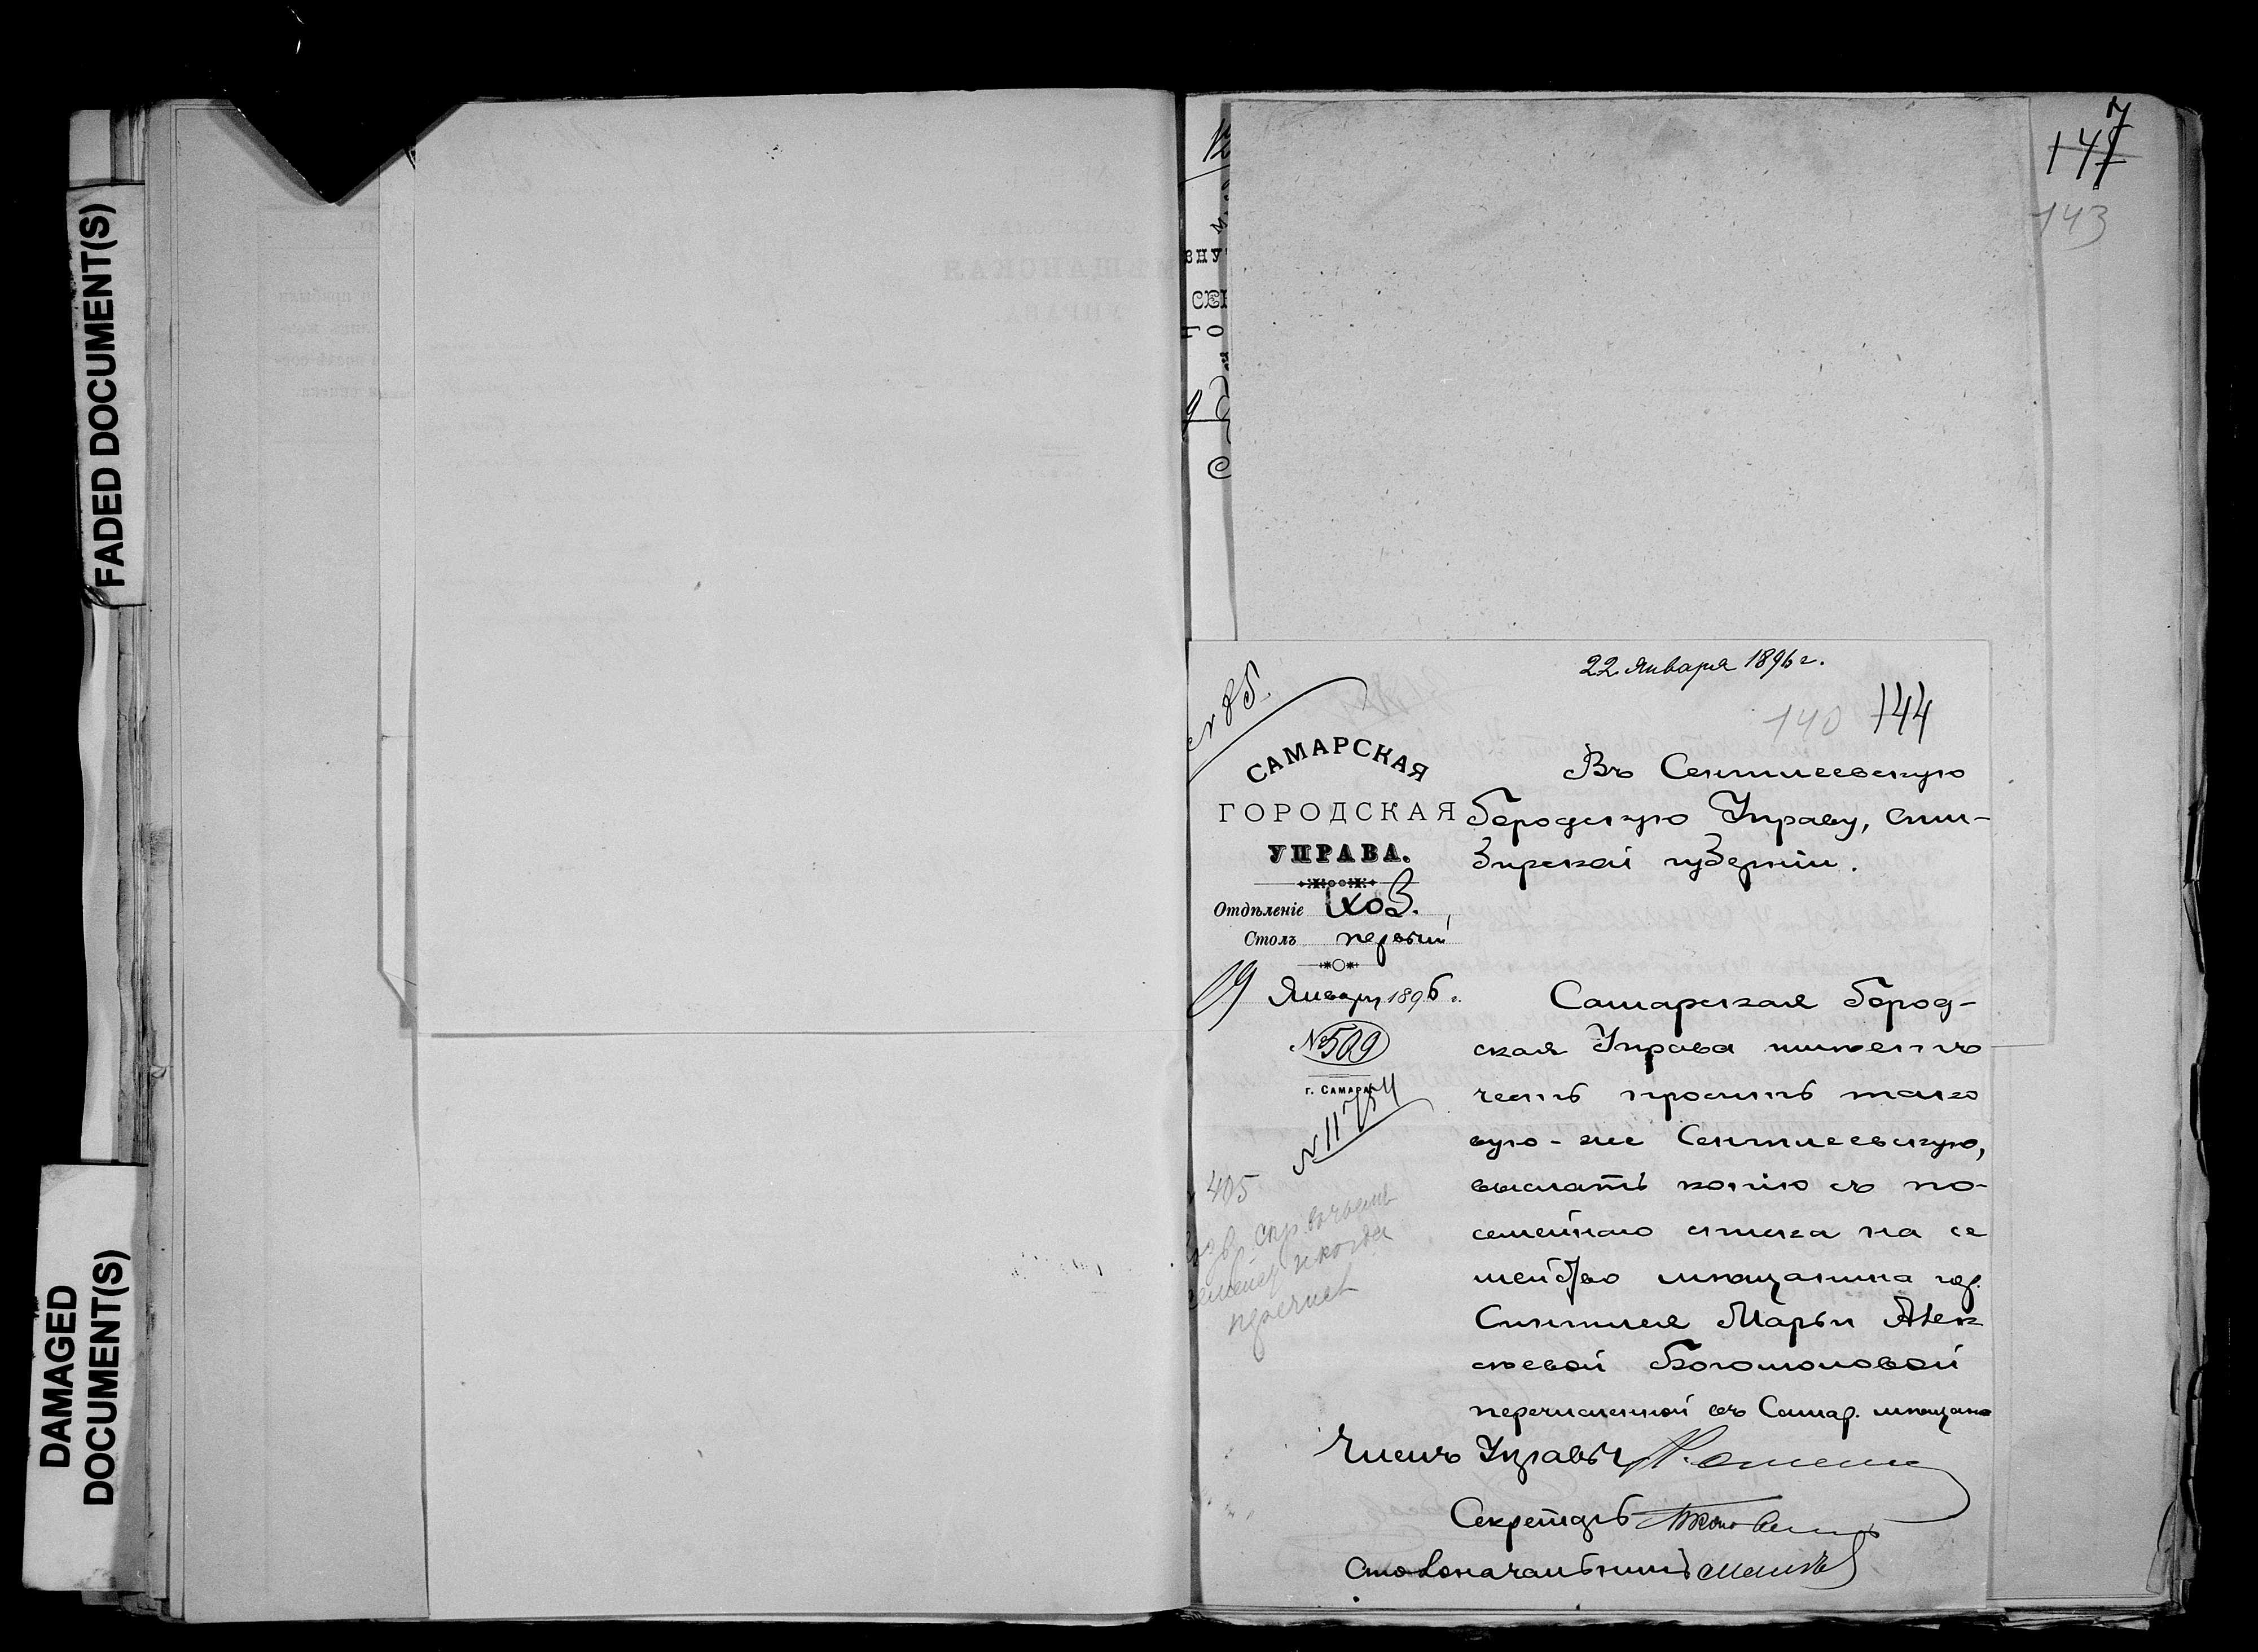 FADED DOCUMENT(S)
DAMAGED
DOCUMENT(S)
7
147
143
22 Января 1896 г.
№ 85.
140 144
САМАРСКАЯ
ГОРОДСКАЯ
УПРАВА.
Отдѣленіе Хоз.
Столъ первый
19 Января 1896 г.
№ 509
г. САМАРА
№ 11754
405
Въ Сенгилеевскую
Городскую Управу, Сим-
бирской губерніи.
Самарская Город-
ская Управа имѣетъ
честь просить тако
вую-же Сенгилеевскую,
выслать копію съ по-
семейнаго списка на се
мейство мѣщанина гор.
Сингилея Марьи Алек
сѣевой Богомоловой
перечисленной въ Самар. мѣщане
Членъ Управы
Секретарь
Столоначальникъ